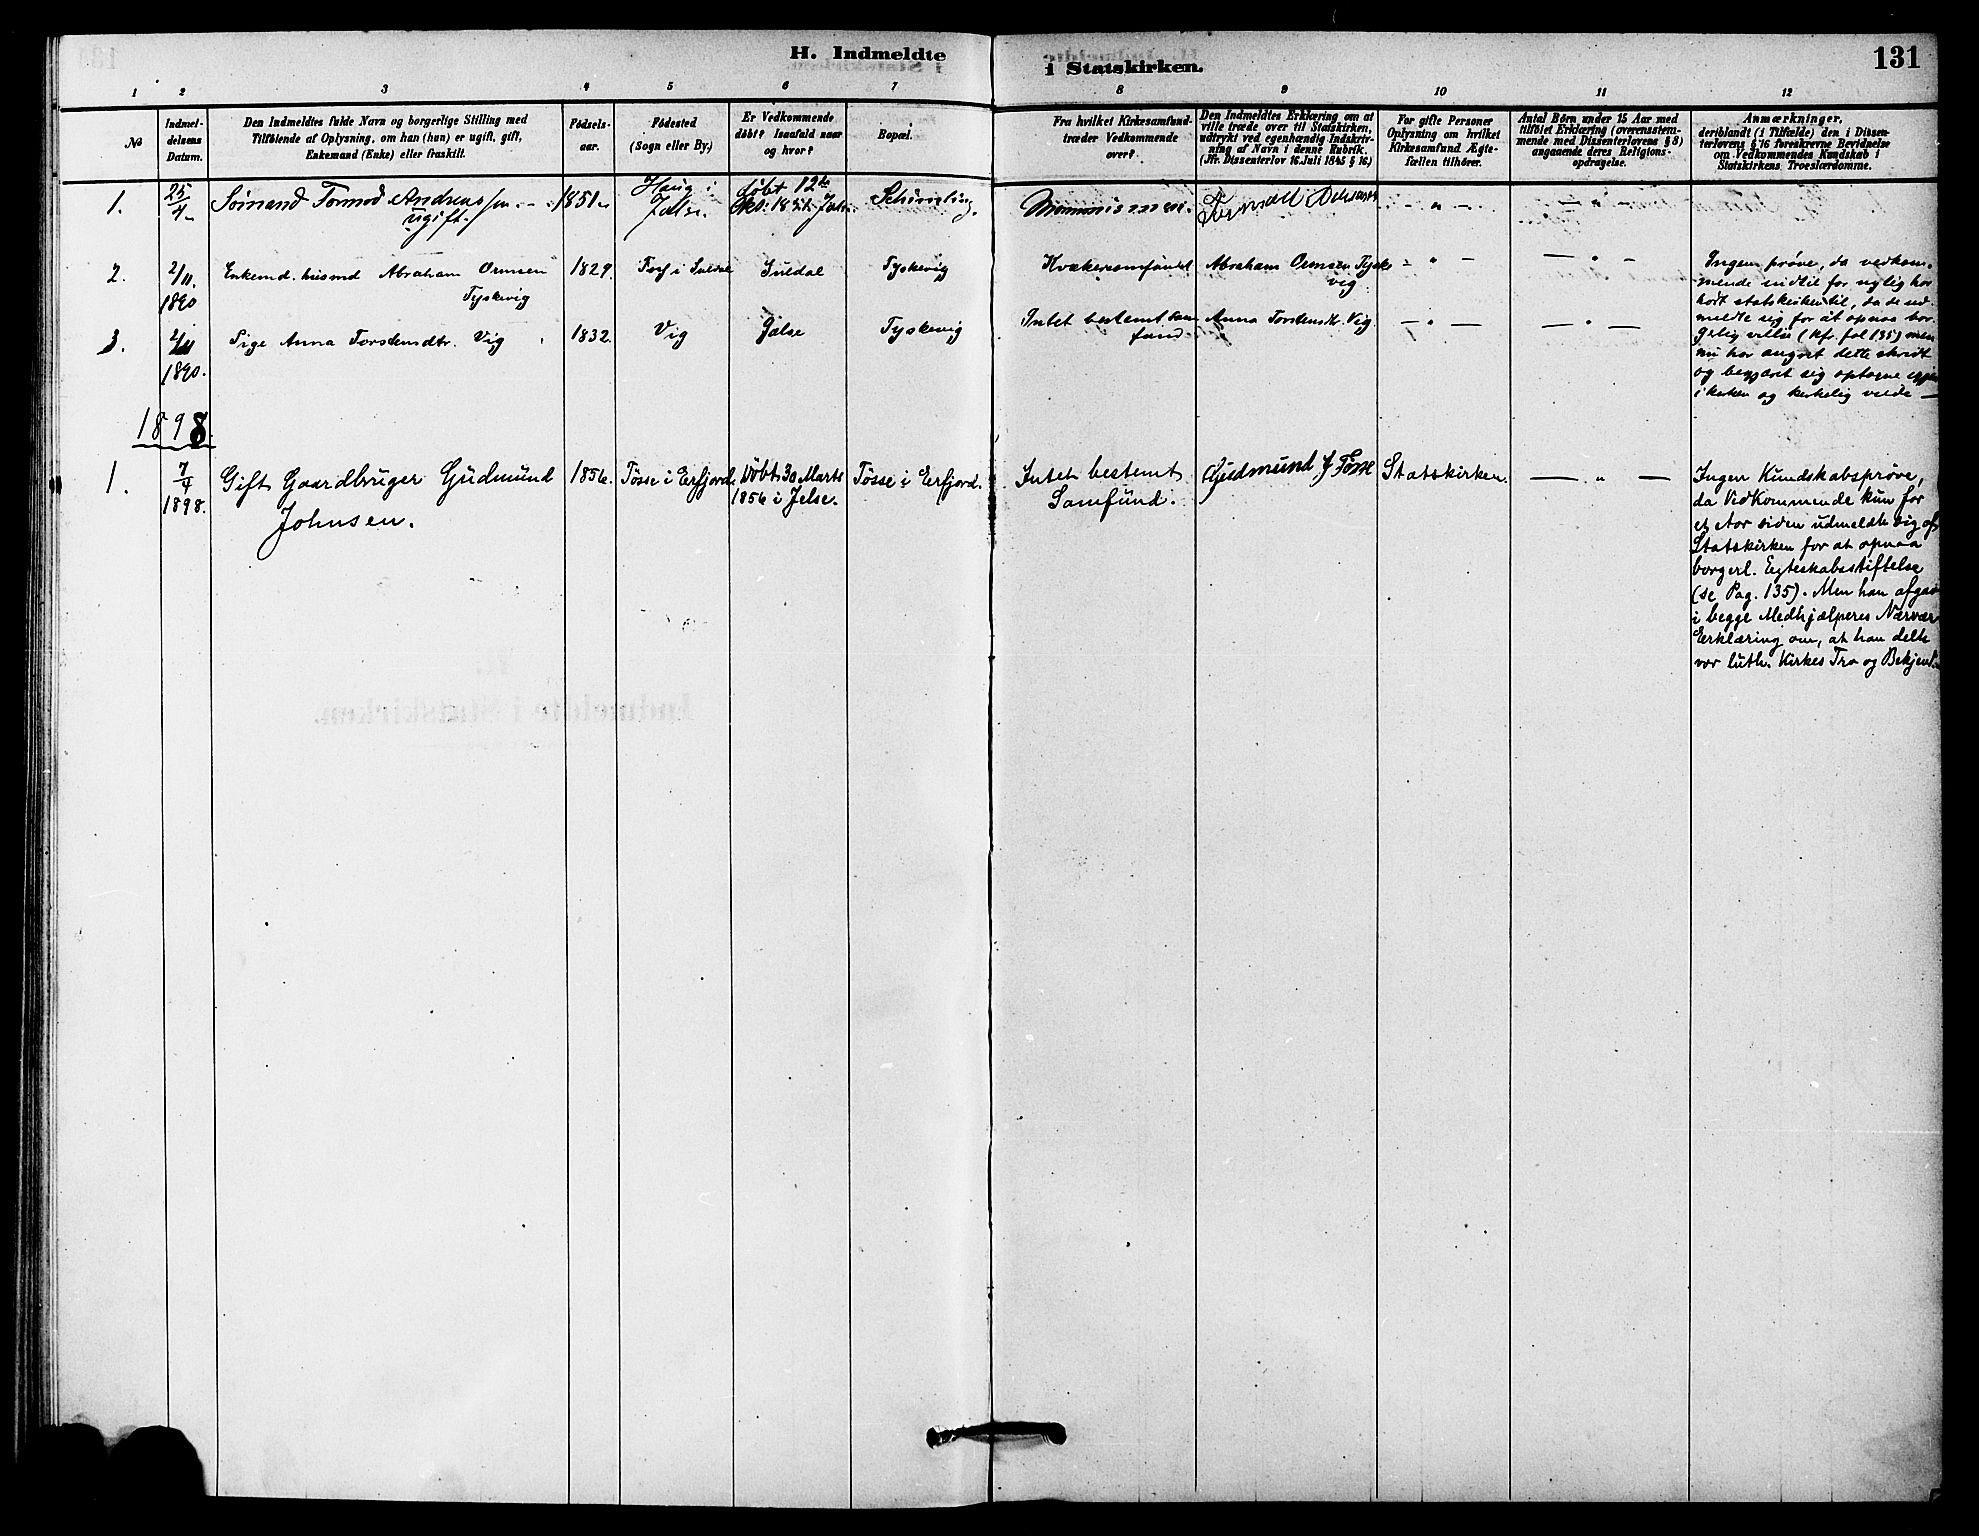 H. Indmeldte
i Statskirken.
131
1 2 3 4 5 6 7 8 9 10 11 12
No
Indmel-
delsens
Datum.
Den Indmeldtes fulde Navn og borgerlige Stilling med
Tilföiende af Oplysning, om han (hun) er ugift, gift,
Enkemand (Enke) eller fraskilt.
Födsels-
aar.
Födested
(Sogn eller By.)
Er Vedkommende
döbt? Isaafald naar
og hvor?
Bopæl.
Fra hvilket Kirkesamfund
træder Vedkommende
over?
Den Indmeldtes Erklæring om at
ville træde over til Statskirken,
udtrykt ved egenhændig Indskriv-
ning af Navn i denne Rubrik.
(Jfr. Dissenterlov 16. Juli 1845 § 16.)
For gifte Personer
Oplysning om hvilket
Kirkesamfund Ægte-
fællen tilhörer.
Antal Börn under 15 Aar med
tilföiet Erklæring (overensstem-
mende med Dissenterlovens § 8)
angaaende deres Religions-
opdragelse.
Anmærkninger,
deriblandt (i Tilfælde) den i Dissen-
terlovens § 16 foreskrevne Bevidnelse
om Vedkommendes Kundskab i
Statskirkens Troeslærdomme.
1.
25/4
Sömand Tormod Andreassen
ugift.
1851
Haug i
Jelse.
döbt 12te
Jelse
Mormonismen.
— " —
— " —
2.
2/11
1890
Enkemd. husmd Abraham Ormsen
Tyskevig
1829
i Suldal
Suldal
Tyskevig
Kvækersamfundet
Abraham Ormsen Tyske
vig
— " —
— " —
Ingen prøve, da vedkom-
mende indtil for nylig har
hört statskirken til, da de ud-
meldte sig for at opnaa bor-
gelig vielse (kfr. fol 135) men
nu har angret dette skridt
og begjæret sig optagne igjen
i kirken og kirkelig viede —
3.
2/11
1890.
Pige Anna Torstensdtr. Vig
1832
Vig
Jelse
Tyskevig
Intet bestemt sam
fund
Anna Torstensdtr. Vig
— " —
— " —
1898
1.
7/4
1898.
Gift Gaardbruger Gudmund
Johnsen.
1856.
Tösse i Erfjord
Döbt 30 Marts
1856 i Jelse.
Tösse i Erfjord.
Intet bestemt
Samfund.
Gudmund J Tösse
Statskirken.
— " —
Ingen Kundskabsprøve,
da Vedkommende kun for
et Aar siden udmeldte sig af
Statskirken for at opnaa
borgerl. Egteskabsstiftelse
(se Pag. 135). Men han afgav
i begge Medhjælperes Nærvær
Erklæring om, at han delte
vor luth. Kirkes Tro og